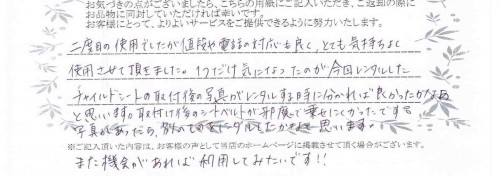 お気づきの点がございましたら、こちらの用紙にご記入いただき、ご返却の際に
お品物に同封していただければ幸いです。
お客様にとって、よりよいサービスをご提供できるように努力いたします。
二度目の使用でしたが値段や電話の対応も良く、とても気持ちよく
使用させて頂きました。1つだけ気になったのが今回レンタルした
チャイルドシートの取付後の写真がレンタルする時に分かれば良かったかなぁ
と思います。取付け後のシートベルトが邪魔で乗せにくかったです
写真があったら、別のものをレンタルしてたかな、と思います。
※ご記入頂いた内容は、お客様の声として当店のホームページに掲載させて頂く場合がございます。
また機会があれば利用してみたいです!!